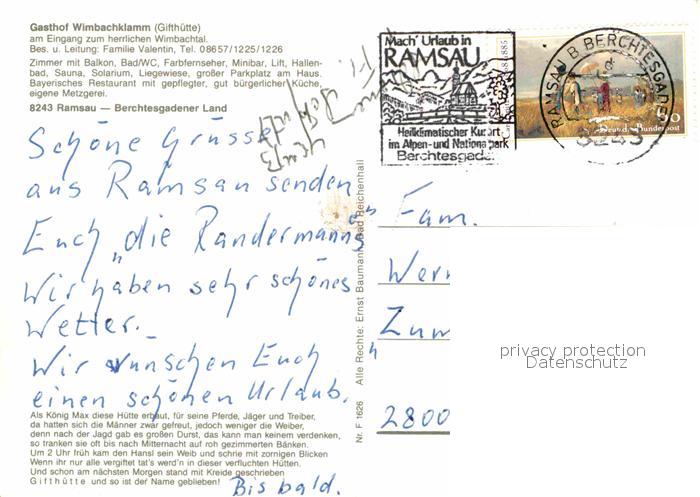 Gasthof Wimbachklamm (Gifthütte)
am Eingang zum herrlichen Wimbachtal.
Bes. u. Leitung: Familie Valentin, Tel. 08657/1225/1226
Zimmer mit Balkon, Bad/WC, Farbfernseher, Minibar, Lift, Hallen-
bad, Sauna, Solarium, Liegewiese, großer Parkplatz am Haus.
Bayerisches Restaurant mit gepflegter, gut bürgerlicher Küche,
eigene Metzgerei.
8243 Ramsau — Berchtesgadener Land
Schöne Grüsse
aus Ramsau senden
Euch „die Randermanns"
Wir haben sehr schönes
Wetter.
Wir wünschen Euch
einen schönen Urlaub.
Als König Max diese Hütte erbaut, für seine Pferde, Jäger und Treiber,
da hatten sich die Männer zwar gefreut, jedoch weniger die Weiber,
denn nach der Jagd gab es großen Durst, das kann man keinem verdenken,
so tranken sie oft bis nach Mitternacht auf roh gezimmerten Bänken.
Um 2 Uhr früh kam den Hansl sein Weib und schrie mit zornigen Blicken
Wenn ihr nur alle vergiftet tat's werd'n in dieser verfluchten Hütten.
Und schon am nächsten Morgen stand mit Kreide geschrieben
Gifthütte und so ist der Name geblieben!
Bis bald.
Nr. F 1626 Alle Rechte: Ernst Baumann, Bad Reichenhall
Mach' Urlaub in
RAMSAU
Heilklimatischer Kurort
im Alpen- und Nationalpark
Berchtesgad
RAMSAU B BERCHTESGADEN
d
8243
Deutsche Bundespost
Fam.
Wern
Zum
2800
privacy protection
Datenschutz